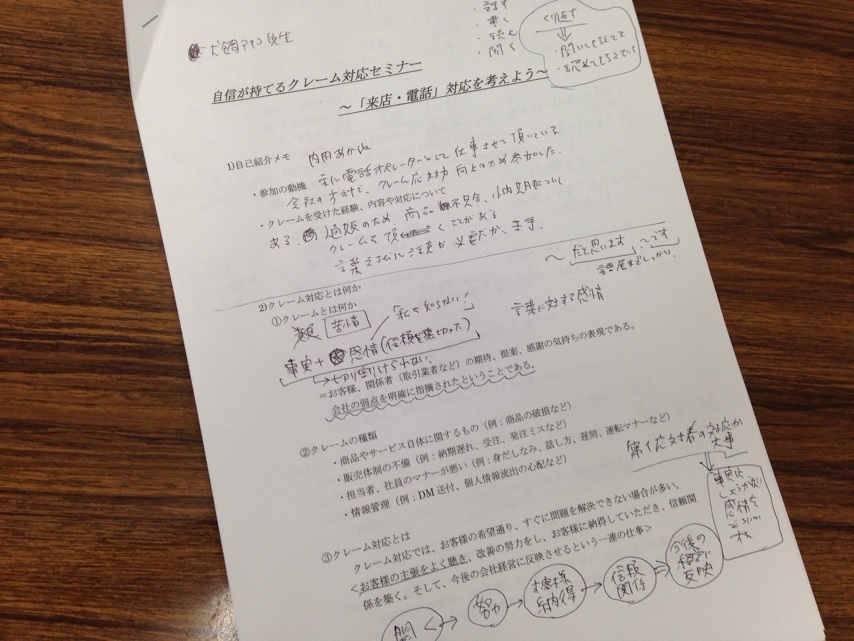 ・話す
・書く
・読む
・聞く
くり返す
・聞いてもらえてる
・認めてもらえている
犬飼アヤコ先生
自信が持てるクレーム対応セミナー
～「来店・電話」対応を考えよう～
1)自己紹介メモ
・参加の動機 主に電話オペレーターとして仕事させて頂いている
クレーム応対力向上のため参加した.
・クレームを受けた経験、内容や対応について
ある. 通販のため、商品不具合、
クレームを頂くことがある
言葉えらびに注意が必要だが、苦手.
～だと思います ～です
語尾までしっかり.
2)クレーム対応とは何か
①クレームとは何か
苦情
「私も知らない！」
言葉に対する感情
事実＋感情(信頼を裏切った)
切り割りけられない.
=お客様、関係者（取引業者など）の期待、提案、感謝の気持ちの表現である。
会社の弱点を明確に指摘されたということである。
②クレームの種類
・商品やサービス自体に関するもの（例：商品の破損など）
・販売体制の不備（例：納期遅れ、受注、発注ミスなど）
・担当者、社員のマナーが悪い（例：身だしなみ、話し方、遅刻、運転マナーなど）
・情報管理（例：DM 送付、個人情報流出の心配など）
第1応対者の対応が
大事
事実は
しょうがない
感情を
③クレーム対応とは
クレーム対応では、お客様の希望通り、すぐに問題を解決できない場合が多い。
＜お客様の主張をよく聴き、改善の努力をし、お客様に納得していただき、信頼関
係を築く。そして、今後の会社経営に反映させるという一連の仕事＞
聞く
努力
お客様
納得
信頼
関係
今後の
経営に
反映